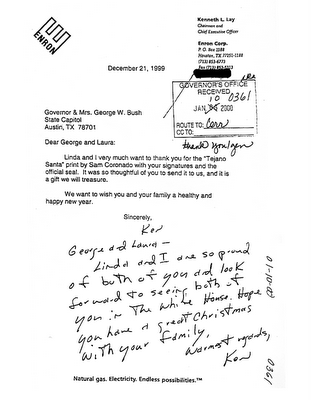 ENRON
Kenneth L. Lay
Chairman and
Chief Executive Officer
Enron Corp.
P. O. Box 1188
Houston, TX 77251-1188
(713) 853-6773
Fax (713) 853-5313
December 21, 1999
GOVERNOR'S OFFICE
RECEIVED
10 0361
JAN 2000
ROUTE TO: Corr
CC TO:
thank you/gen
Governor & Mrs. George W. Bush
State Capitol
Austin, TX 78701
Dear George and Laura:
Linda and I very much want to thank you for the "Tejano
Santa" print by Sam Coronado with your signatures and the
official seal. It was so thoughtful of you to send it to us, and it is
a gift we will treasure.
We want to wish you and your family a healthy and
happy new year.
Sincerely,
Ken
George and Laura —
Linda and I are so proud
of both of you and look
forward to seeing both of
you in The White House. Hope
you have a great Christmas
with your family.
Warmest regards,
Ken
01-10-00
0361
Natural gas. Electricity. Endless possibilities.™